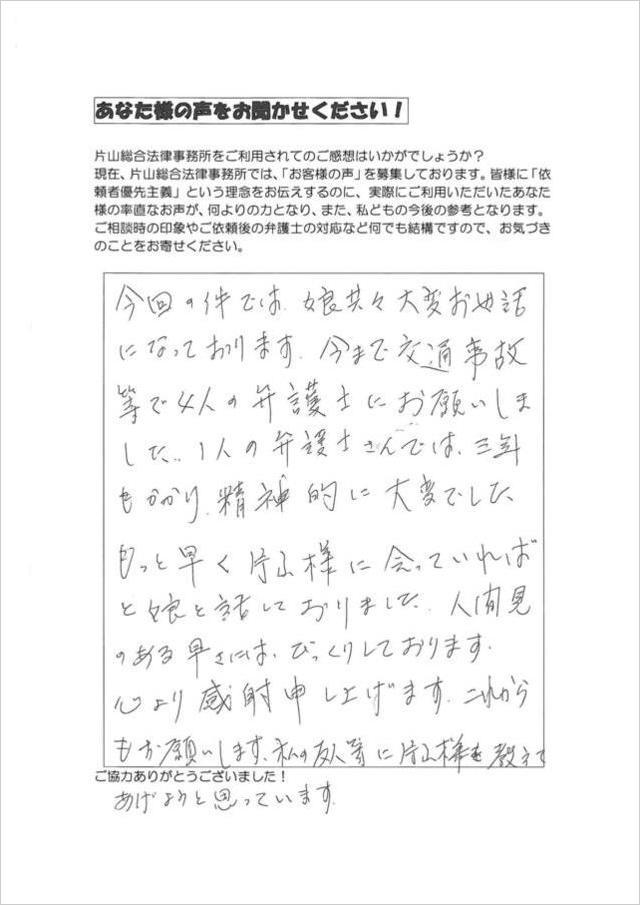 あなた様の声をお聞かせください!
片山総合法律事務所をご利用されてのご感想はいかがでしょうか?
現在、片山総合法律事務所では、「お客様の声」を募集しております。皆様に「依
頼者優先主義」という理念をお伝えするのに、実際にご利用いただいたあなた
様の率直なお声が、何よりの力となり、また、私どもの今後の参考となります。
ご相談時の印象やご依頼後の弁護士の対応など何でも結構ですので、お気づき
のことをお寄せください。
今回の件では、娘共々大変お世話
になっております。今まで交通事故
等で4人の弁護士にお願いしま
した。1人の弁護士さんでは、三年
もかかり、精神的に大変でした。
もっと早く片山様に会っていれば
と娘と話しておりました。人間見
のある早さには、びっくりしております。
心より感射申し上げます。これから
もお願いします。私の友人等に片山様を教えて
ご協力ありがとうございました!
あげようと思っています。